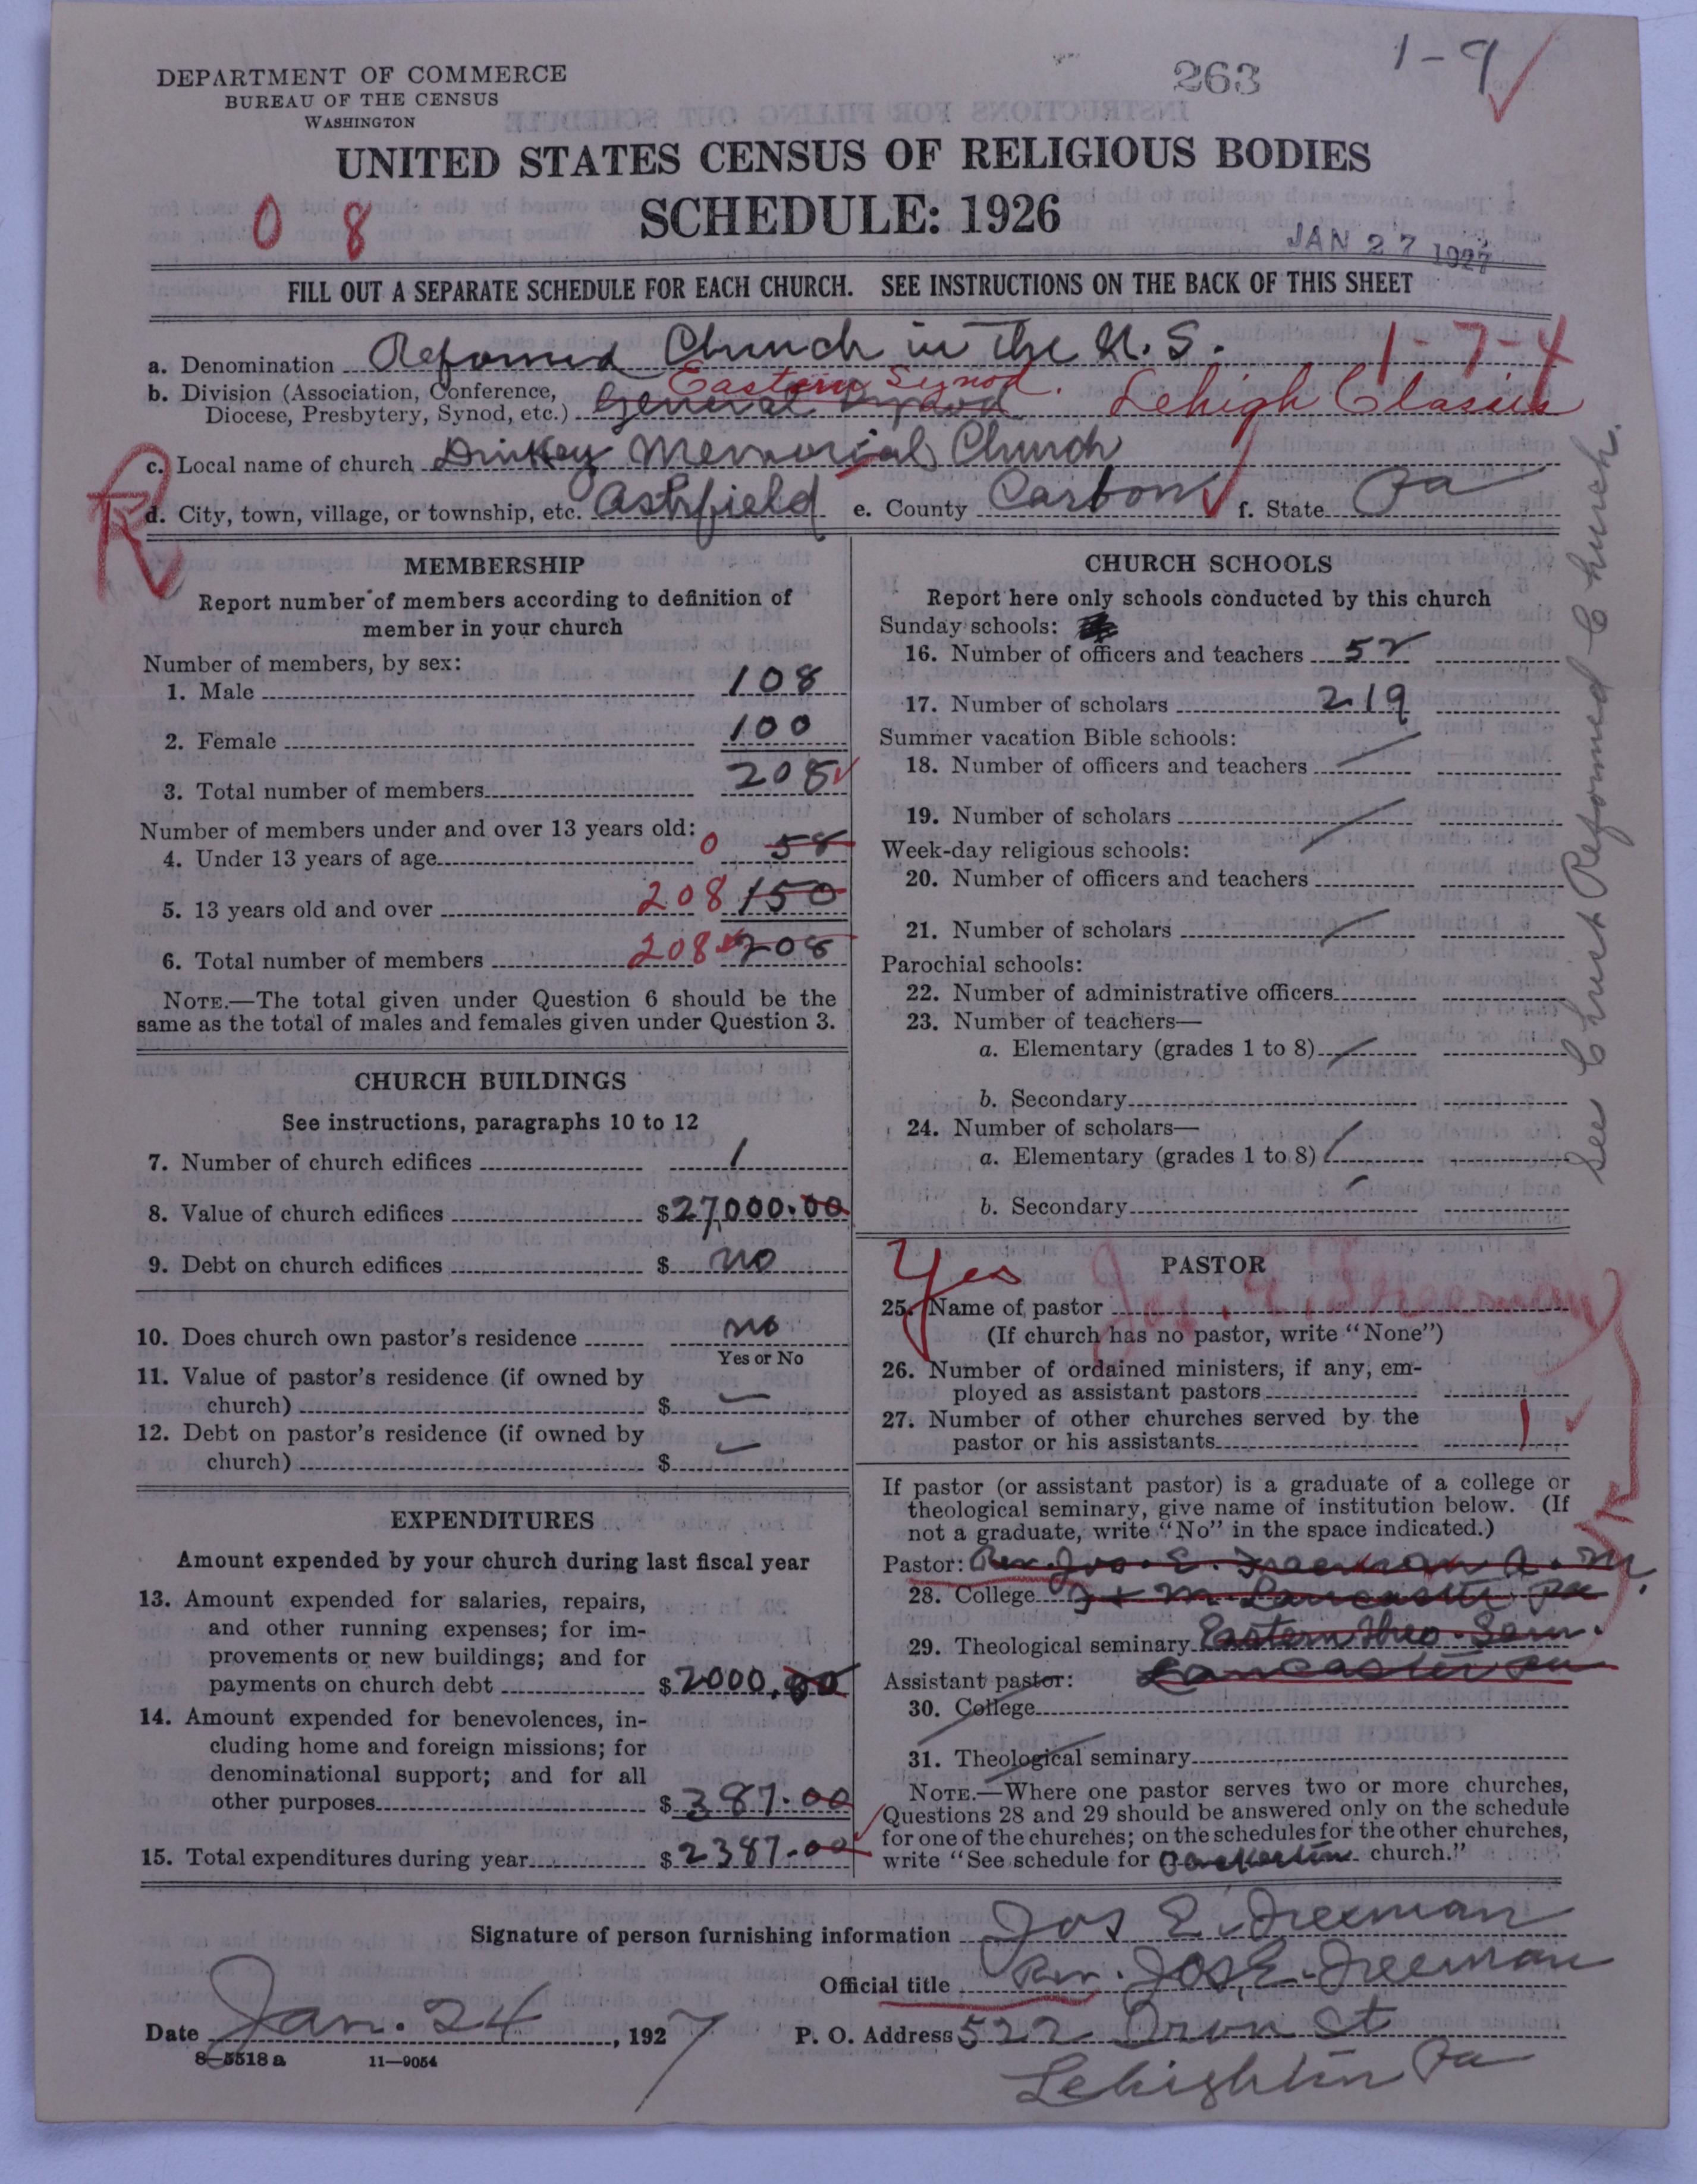 DEPARTMENT OF COMMERCE
BUREAU OF THE CENSUS
WASHINGTON
263
1-9
UNITED STATES CENSUS OF RELIGIOUS BODIES
SCHEDULE: 1926
0 8
JAN 27 1927
FILL OUT A SEPARATE SCHEDULE FOR EACH CHURCH. SEE INSTRUCTIONS ON THE BACK OF THIS SHEET
1-7-4
a. Denomination Reformed Church in the U.S.
b. Division (Association, Conference, Eastern Synod.
Diocese, Presbytery, Synod, etc.) General Synod Lehigh Classis
c. Local name of church Dinkey Memorial Church
d. City, town, village, or township, etc. Ashfield e. County Carbon f. State Pa
MEMBERSHIP
Report number of members according to definition of
member in your church
Number of members, by sex:
1. Male 108
2. Female 100
3. Total number of members 208
Number of members under and over 13 years old:
4. Under 13 years of age 0 58
5. 13 years old and over 208 150
6. Total number of members 208 208
NOTE.—The total given under Question 6 should be the
same as the total of males and females given under Question 3.
CHURCH BUILDINGS
See instructions, paragraphs 10 to 12
7. Number of church edifices 1
8. Value of church edifices $27,000.00
9. Debt on church edifices $ no
10. Does church own pastor's residence no
Yes or No
11. Value of pastor's residence (if owned by
church) $
12. Debt on pastor's residence (if owned by
church) $
EXPENDITURES
Amount expended by your church during last fiscal year
13. Amount expended for salaries, repairs,
and other running expenses; for im-
provements or new buildings; and for
payments on church debt $2000.00
14. Amount expended for benevolences, in-
cluding home and foreign missions; for
denominational support; and for all
other purposes $387.00
15. Total expenditures during year $2387.00
CHURCH SCHOOLS
Report here only schools conducted by this church
Sunday schools:
16. Number of officers and teachers 52
17. Number of scholars 219
Summer vacation Bible schools:
18. Number of officers and teachers
19. Number of scholars
Week-day religious schools:
20. Number of officers and teachers
21. Number of scholars
Parochial schools:
22. Number of administrative officers
23. Number of teachers—
a. Elementary (grades 1 to 8)
b. Secondary
24. Number of scholars—
a. Elementary (grades 1 to 8)
b. Secondary
See Christ Reformed Church.
Yes
PASTOR
25. Name of pastor Jos. E. Freeman
(If church has no pastor, write "None")
26. Number of ordained ministers, if any, em-
ployed as assistant pastors
27. Number of other churches served by the
pastor or his assistants 1
If pastor (or assistant pastor) is a graduate of a college or
theological seminary, give name of institution below. (If
not a graduate, write "No" in the space indicated.)
Pastor: Rev. Jos. E. Freeman A.M.
28. College F + M. Lancaster Pa
29. Theological seminary Eastern Theo. Sem.
Lancaster Pa
Assistant pastor:
30. College
31. Theological seminary
NOTE.—Where one pastor serves two or more churches,
Questions 28 and 29 should be answered only on the schedule
for one of the churches; on the schedules for the other churches,
write "See schedule for Packerton church."
Signature of person furnishing information Jos E. Freeman
Official title Rev. Jos. E. Freeman
Date Jan. 24, 1927 P. O. Address 522 Iron St
Lehighton Pa
8—5518 a 11—9054